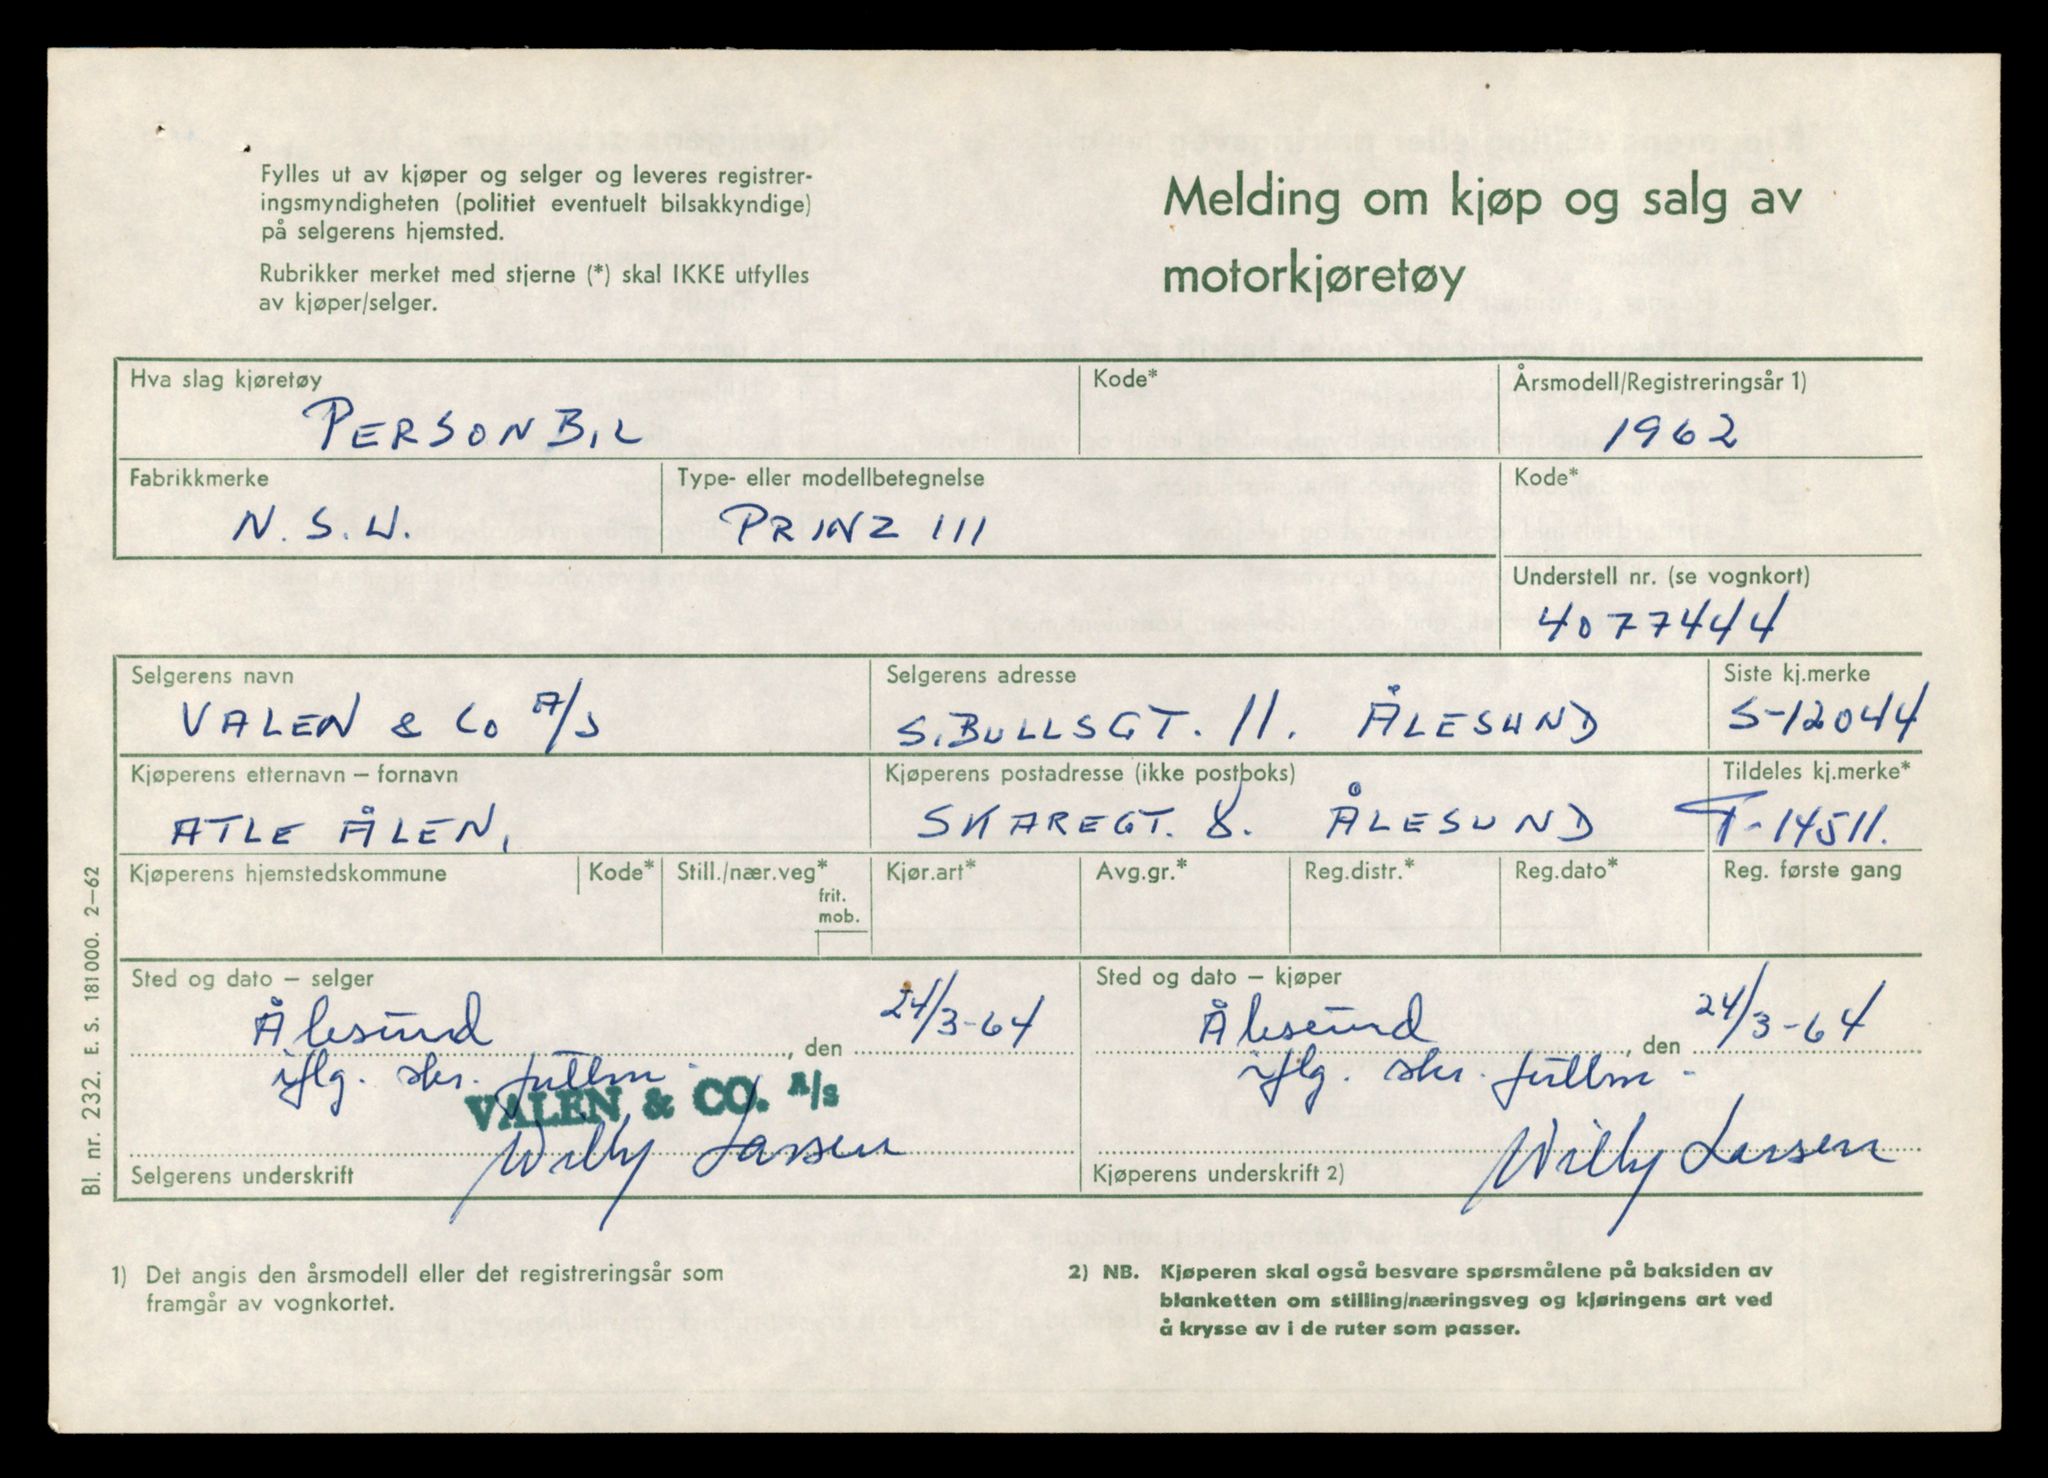 Fylles ut av kjøper og selger og leveres registrer-
ingsmyndigheten (politiet eventuelt bilsakkyndige)
på selgerens hjemsted.
Rubrikker merket med stjerne (*) skal IKKE utfylles
av kjøper/selger.
Melding om kjøp og salg av
motorkjøretøy
Hva slag kjøretøy
PERSONBIL
Kode*
Årsmodell/Registreringsår 1)
1962
Fabrikkmerke
N.S.U.
Type- eller modellbetegnelse
PRINZ III
Kode*
Understell nr. (se vognkort)
4077444
Selgerens navn
VALEN & Co A/S
Selgerens adresse
S.BULLSGT. 11. ÅLESUND
Siste kj.merke
S-12044
Kjøperens etternavn – fornavn
ATLE ÅLEN,
Kjøperens postadresse (ikke postboks)
SKAREGT. 8. ÅLESUND
Tildeles kj.merke*
T-14511.
Kjøperens hjemstedskommune
Kode*
Still./nær.veg*
frit.
mob.
Kjør.art*
Avg.gr.*
Reg.distr.*
Reg.dato*
Reg. første gang
Sted og dato – selger
Ålesund, den 24/3-64
iflg. skr. fullm.
VALEN & CO. A/S
Willy Larsen
Selgerens underskrift
Sted og dato – kjøper
Ålesund, den 24/3-64
iflg. skr. fullm.
Willy Larsen
Kjøperens underskrift 2)
1) Det angis den årsmodell eller det registreringsår som
framgår av vognkortet.
2) NB. Kjøperen skal også besvare spørsmålene på baksiden av
blanketten om stilling/næringsveg og kjøringens art ved
å krysse av i de ruter som passer.
Bl. nr. 232. E. S. 181000. 2–62